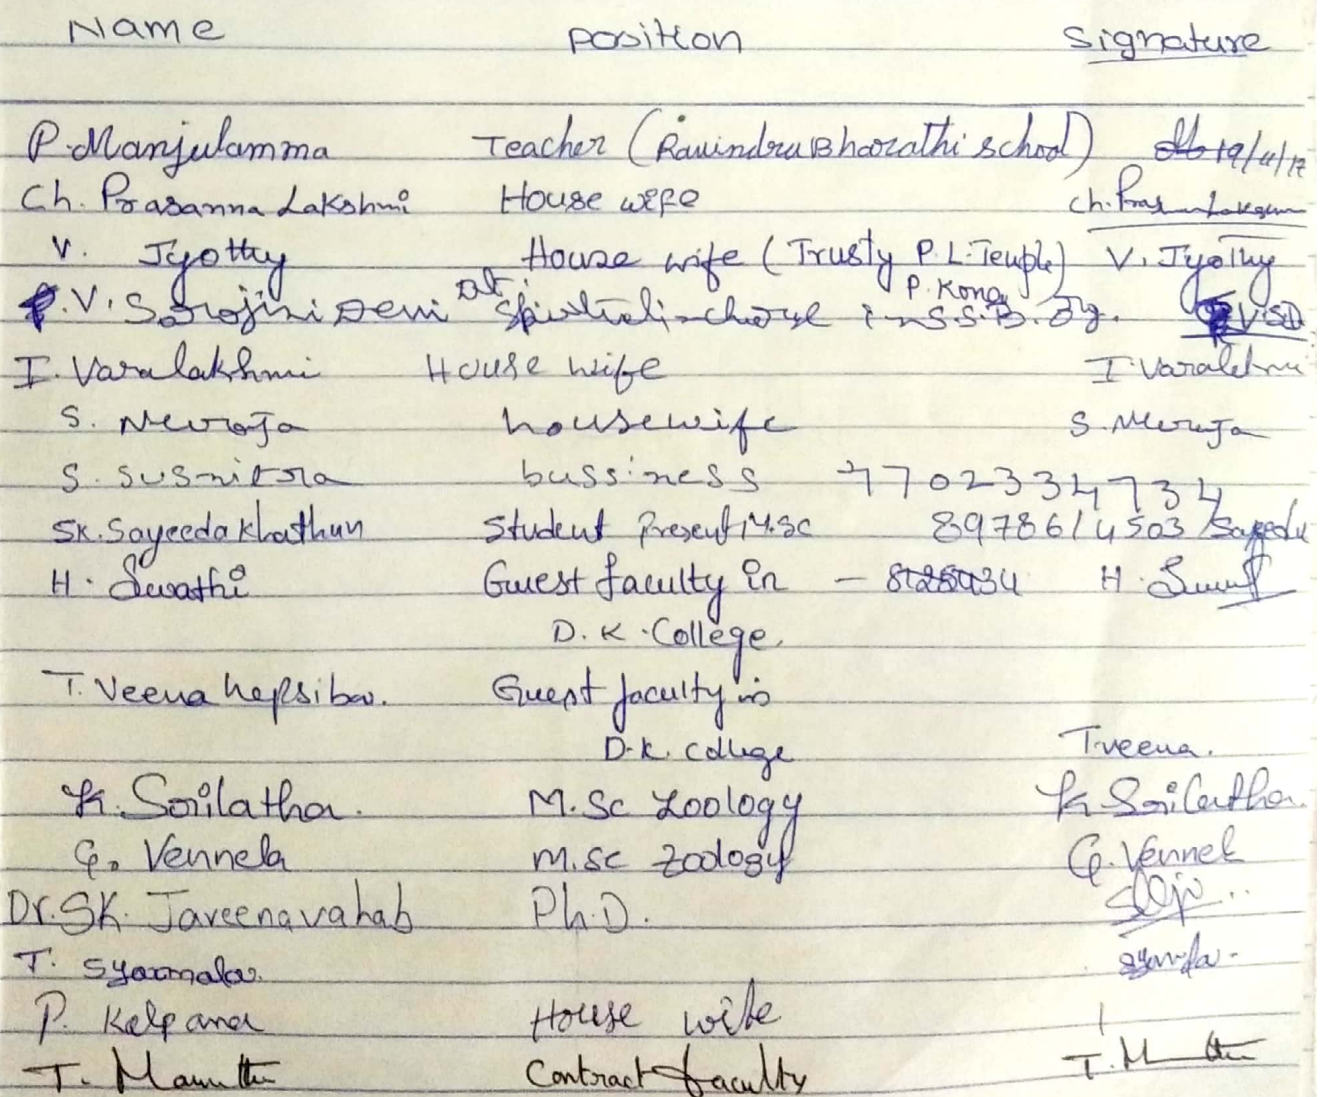 Name position Signature
P. Manjulamma Teacher (Ravindra Bharathi school) 19/4/17
Ch. Prasanna Lakshmi House wife Ch. Pras Laksm
V. Jyothy House wife (Trusty P.L. Temple) V. Jyothy
P. Kong
P.V. Sarojini Devi in S.S.B. V.SD
I. Varalakshmi House wife I. Varalakhmi
S. Neeroja housewife S. Neeroja
S. Susmitra bussiness 7702334734
SK. Sayeeda Khathun Student Present M.sc 8978614503 Sayeeda
H. Swathi Guest faculty in – H. Swathi
D.K. College.
T. Veena hepsiba. Guest faculty in
D.K. College T.veena.
K. Srilatha. M.Sc Zoology K Srilatha.
G. Vennela M.sc Zoology G. Vennel
Dr. SK. Javeenavahab Ph.D.
T. Syamala.
P. Kalpana House wife
T. Contract faculty T.